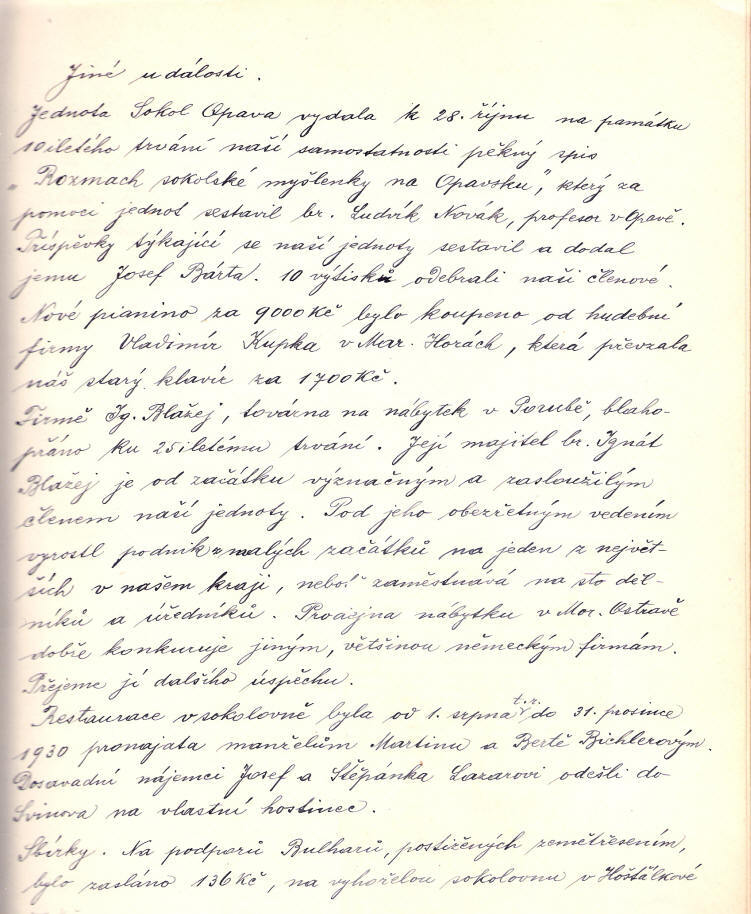 Jiné události.
Jednota Sokol Opava vydala k 28. říjnu na památku
10iletého trvání naší samostatnosti pěkný spis
„Rozmach sokolské myšlenky na Opavsku", který za
pomoci jednot sestavil br. Ludvík Novák, profesor v Opavě.
Příspěvky týkající se naší jednoty sestavil a dodal
jemu Josef Bárta. 10 výtisků odebrali naši členové.
Nové pianino za 9000 Kč bylo koupeno od hudební
firmy Vladimír Kupka v Mar. Horách, která převzala
náš starý klavír za 1700 Kč.
Firmě Ig. Blažej, továrna na nábytek v Porubě, blaho-
přáno ku 25iletému trvání. Její majitel br. Ignát
Blažej je od začátku význačným a zasloužilým
členem naší jednoty. Pod jeho obezřetným vedením
vyrostl podnik z malých začátků na jeden z největ-
ších v našem kraji, neboť zaměstnává na sto děl-
níků a úředníků. Prodejna nábytku v Mor. Ostravě
dobře konkuruje jiným, většinou německým firmám.
Přejeme jí dalšího úspěchu.
Restaurace v sokolovně byla od 1. srpna t.r. do 31. prosince
1930 pronajata manželům Martinu a Bertě Bichlerovým.
Dosavadní nájemci Josef a Štěpánka Lazarovi odešli do
Svinova na vlastní hostinec.
Sbírky. Na podporu Bulharů, postižených zemětřesením,
bylo zasláno 136 Kč, na vyhořelou sokolovnu v Hošťálkové